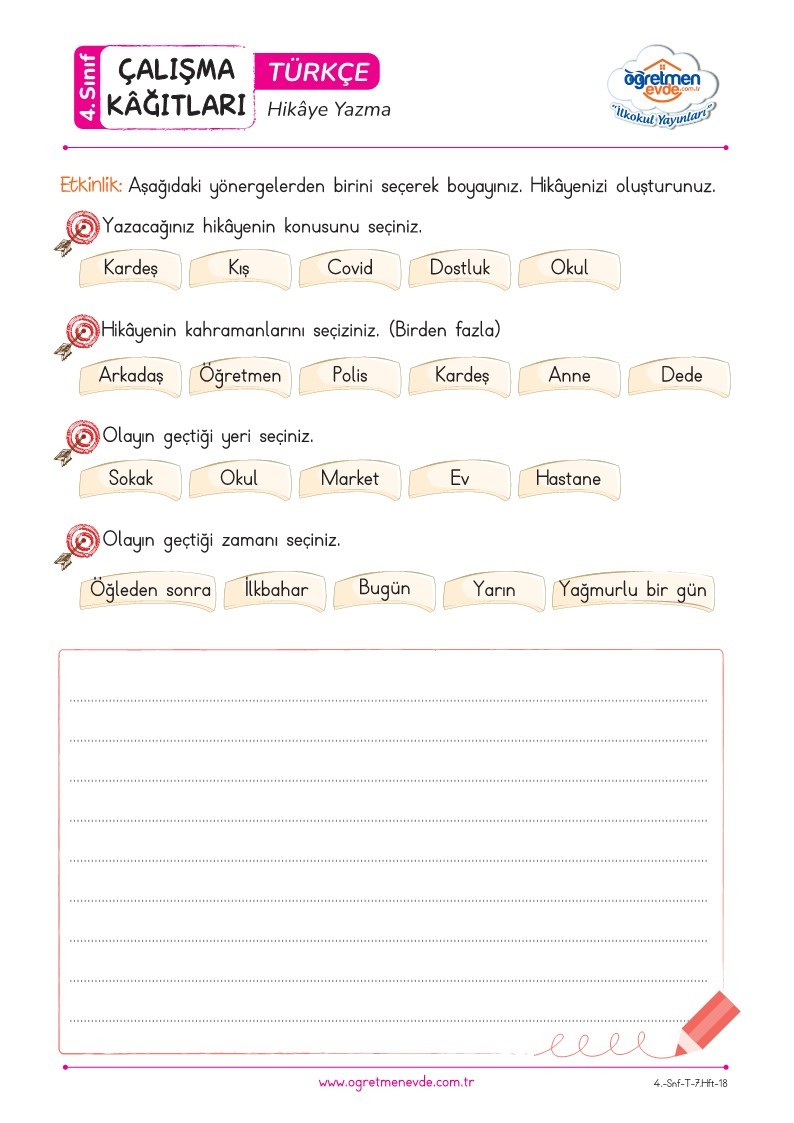 4. Sınıf
ÇALIŞMA
KÂĞITLARI
TÜRKÇE
Hikâye Yazma
öğretmen
evde.com.tr
"İlkokul Yayınları"
Etkinlik: Aşağıdaki yönergelerden birini seçerek boyayınız. Hikâyenizi oluşturunuz.
Yazacağınız hikâyenin konusunu seçiniz.
Kardeş Kış Covid Dostluk Okul
Hikâyenin kahramanlarını seçiziniz. (Birden fazla)
Arkadaş Öğretmen Polis Kardeş Anne Dede
Olayın geçtiği yeri seçiniz.
Sokak Okul Market Ev Hastane
Olayın geçtiği zamanı seçiniz.
Öğleden sonra İlkbahar Bugün Yarın Yağmurlu bir gün
www.ogretmenevde.com.tr
4.-Snf-T-7.Hft-18